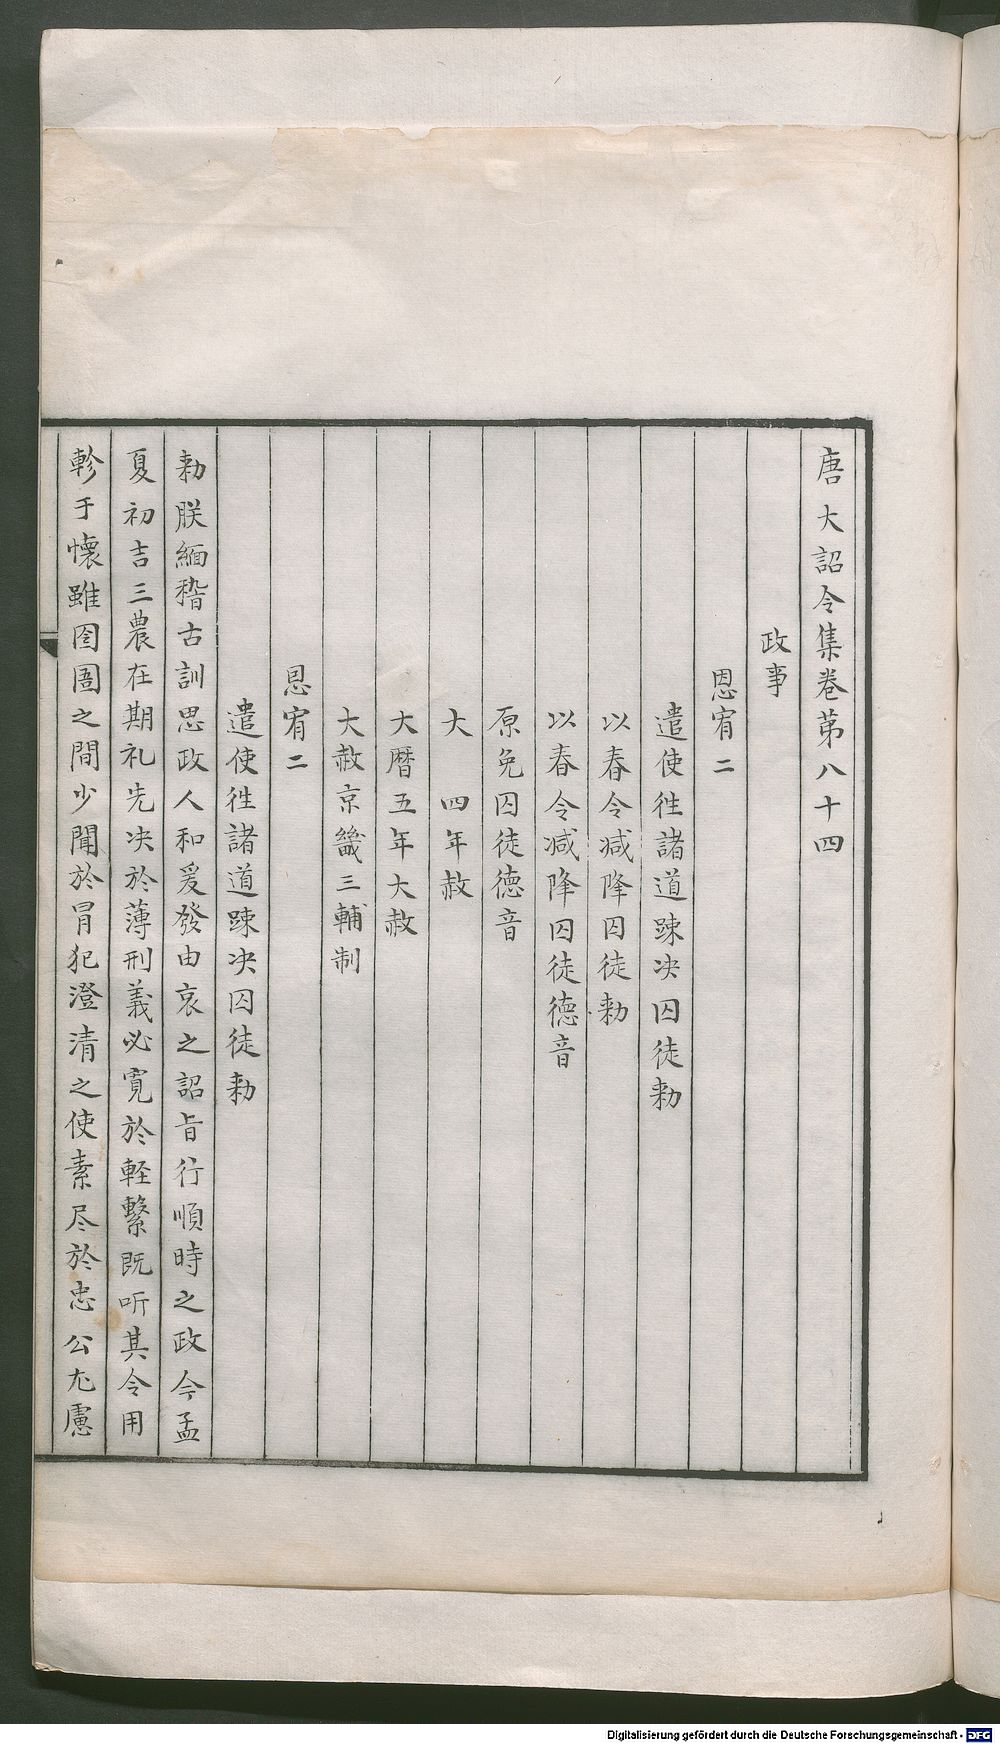 唐大詔令集卷第八十四
政事
恩宥二
遣使徃諸道踈决囚徒勑
以春令减降囚徒勑
以春令减降囚徒德音
原免囚徒德音
大 四年赦
大曆五年大赦
大赦京畿三輔制
恩宥二
遣使徃諸道踈决囚徒勑
勑朕緬稽古訓思政人和爰發由哀之詔旨行順時之政今孟
夏初吉三農在期礼先决於薄刑義必寛於軽繫既听其令用
軫于懷雖囹圄之間少聞於冐犯澄清之使素尽於忠公尤慮
Digitalisierung gefördert durch die Deutsche Forschungsgemeinschaft - DFG